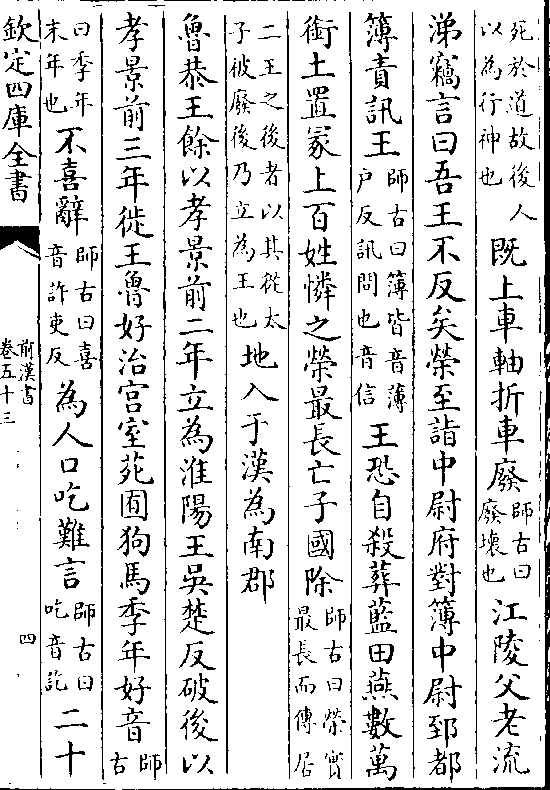 死於道故後人
以為行神也
既上車軸折車廢
師古曰
廢壞也
江陵父老流
涕竊言曰吾王不反矣榮至詣中尉府對簿中尉郅都
簿責訊王
師古曰簿皆音薄
户反訊問也音信
王恐自殺葬藍田燕數萬
銜土置冢上百姓憐之榮最長亡子國除
師古曰榮實
最長而傳居
二王之後者以其從太
子被廢後乃立為王也
地入于漢為南郡
魯恭王餘以孝景前二年立為淮陽王吳楚反破後以
孝景前三年徙王魯好治宮室苑囿狗馬季年好音
師
古
曰季年
末年也
不喜辭
師古曰喜
音許吏反
為人口吃難言
師古曰
吃音訖
二十
欽定四庫全書
前漢書
卷五十三
四